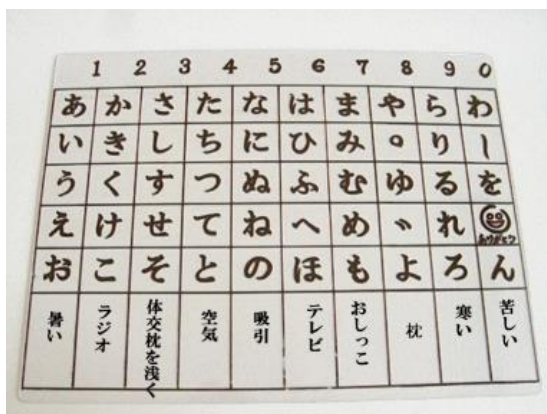 1 2 3 4 5 6 7 8 9 0
あ か さ た な は ま や ら わ
い き し ち に ひ み ゜ り ー
う く す つ ぬ ふ む ゆ る を
え け せ て ね へ め ゛ れ ありがとう
お こ そ と の ほ も よ ろ ん
暑い ラジオ 体交枕を浅く 空気 吸引 テレビ おしっこ 枕 寒い 苦しい